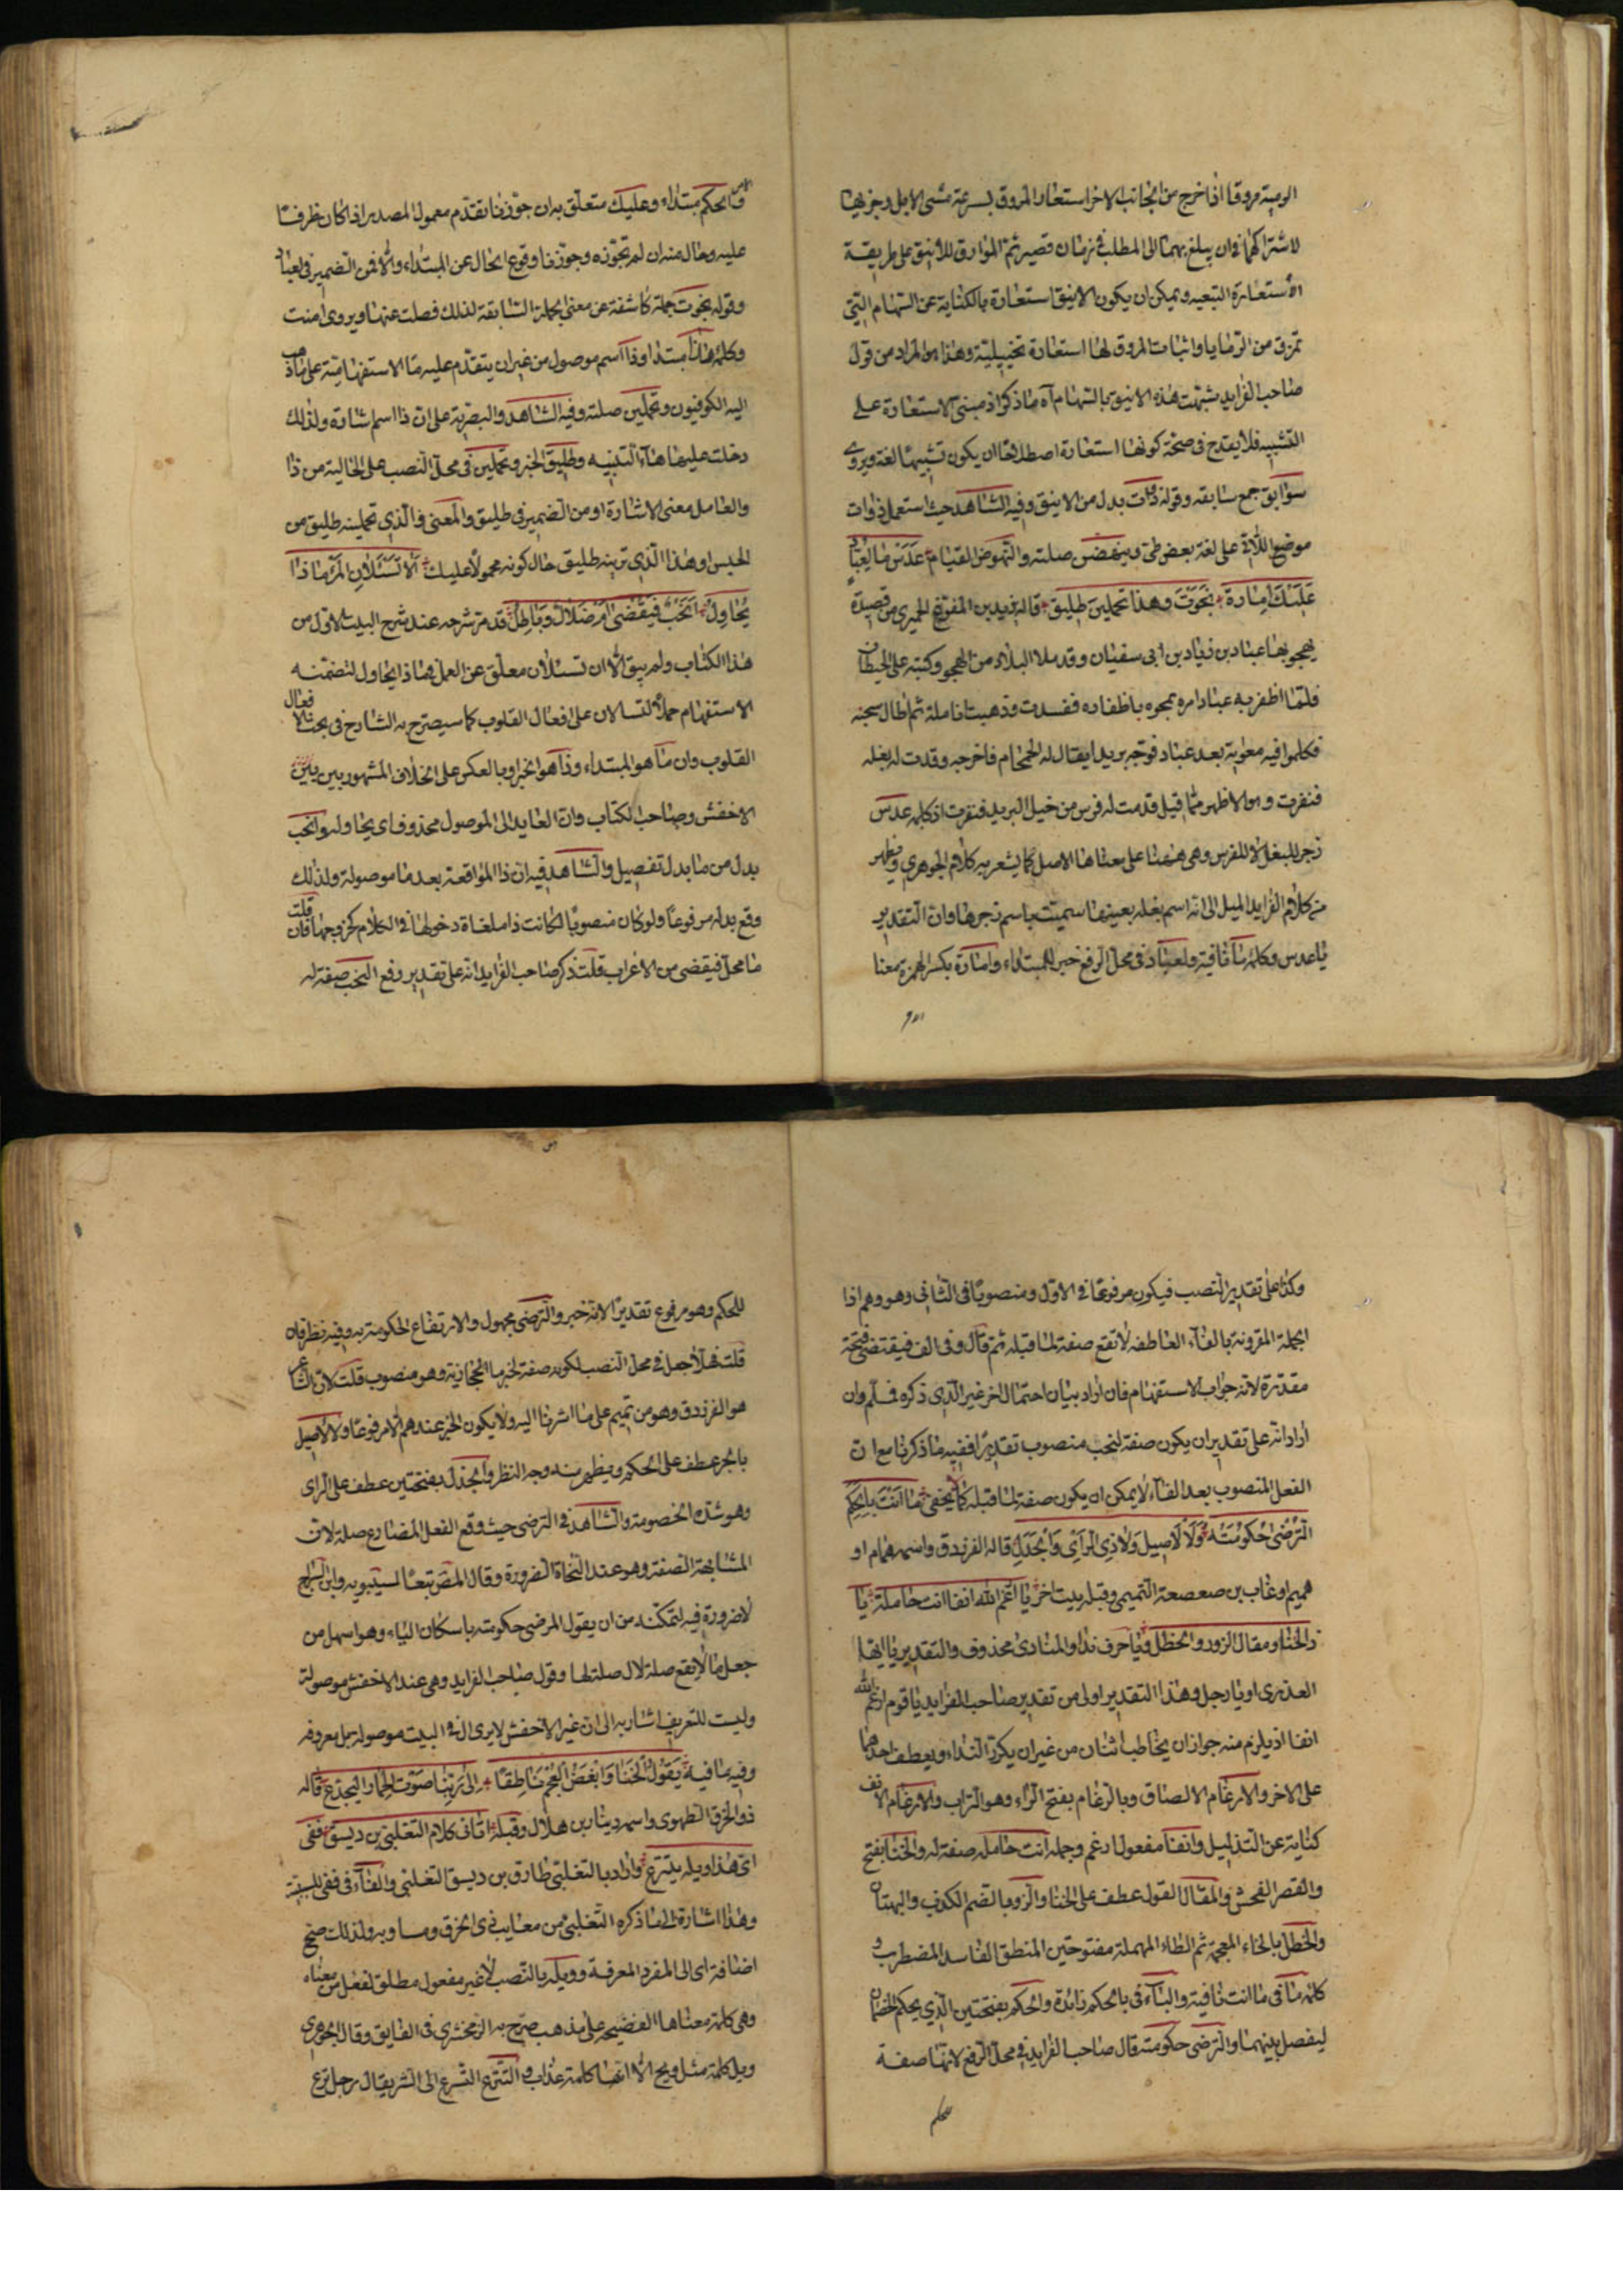 الرمية مروقا اذا خرج من الجانب الاخر استعار المروق لسرعة مشى الابل وجريها
لاشتراكهما فى ان يبلغ بهما الى المطلب فى زمان قصير ثم الموارق للاينق على طريقة
الاستعارة التبعيه ويمكن ان يكون الاينق استعارة بالكناية عن السهام التى
تمرق من الرمايا واثبات المروق لها استعارة تخييلية وهذا هو المراد من قول
صاحب الفرايد شبهت هذه الاينق بالسهام آه ما ذكر اذ مبنى الاستعارة على
التشبيه فلا يقدح فى صحة كونها استعارة اصطلاحا ان يكون تشبيها لغة ويروى
سوابق جمع سابقه وقوله ذوات بدل من الاينق وفيه الشاهد حيث استعمل ذوات
موضع اللاتى على لغة بعض طى وينهضن صلته والنهوض القيام عدس ما لعباد
عليك امارة نجوت وهذا تحملين طليق قاله يزيد بن المفرغ الحميرى من قصيدة
يهجو بها عباد بن زياد بن ابى سفيان وقد ملا البلاد من الهجو وكتبه على الحيطان
فلما اظفر به عباد امره بمحوه باظفاره ففسدت وذهبت انامله ثم اطال سجنه
فكلموا فيه معوية بعد عباد فوجه بريدا يقال له الحمحام فاخرجه وقدمت له بغله
فنفرت وهو الاظهر مما قيل قدمت له فرس من خيل البريد فنفرت اذ كلمه عدس
زجر للبغل لا للفرس وهى ههنا على معناها الاصل كما يشعر به كلام الجوهرى ويظهر
من كلام الفرايد الميل الى انه اسم بغله بعينها سميت باسم زجرها وان التقدير
يا عدس وكلمه ما نافية ولعباد فى محل الرفع خبر للمبتداء وامارة بكسر الهمزة بمعنا
والحكم مبتداء وعليك متعلق به ان جوزنا تقدم معمول المصدر اذا كان ظرفا
عليه وحال منه ان لم تجوزه وجوزنا وقوع الحال عن المبتداء والا فمن الضمير فى لعباد
وقوله نجوت جملة كاشفة عن معنى الجملة السابقة لذلك فصلت عنها ويروى امنت
وكلمه هذا مبتدا وذا اسم موصول من غير ان يتقدم عليه ما الاستفهامية على ما ذهب
اليه الكوفيون وتحملين صلته وفيه الشاهد والبصرية على ان ذا اسم اشارة ولذلك
دخلت عليها هاء التنبيه وطليق الخبر وتحملين فى محل النصب على الحالية من ذا
والعامل معنى الاشارة او من الضمير فى طليق والمعنى والذى تحملينه طليق من
الحبس او هذا الذى ترينه طليق حال كونه محمولا عليك الا تسئلان المرء ماذا
يحاول انحب فيقضى ام ضلال وباطل قد مر شرحه عند شرح البيت الاول من
هذا الكتاب ولم يبق الا ان تسئلان معلق عن العمل فى ماذا يحاول لتضمنه
الاستفهام حملا لتسالان على افعال القلوب كما سيصرح به الشارح فى بحث افعال
القلوب وان ما هو المبتداء وذا هو الخبر او بالعكس على الخلاف المشهور بين
الاخفش وصاحب الكتاب وان العايد الى الموصول محذوف اى يحاوله وانحب
بدل من ما بدل تفصيل والشاهد فيه ان ذا الواقعة بعد ما موصولة ولذلك
وقع بدله مرفوعا ولو كان منصوبا لكانت ذا ملغاة دخولها فى الكلام كخروجها فان قلت
ما محل فيقضى من الاعراب قلت ذكر صاحب الفرايد انه على تقدير رفع النحب صفة له
وكذا على تقدير النصب فيكون مرفوعا فى الاول ومنصوبا فى الثانى وهو وهم اذا
الجملة المقرونة بالفاء العاطفه لا تقع صفة لما قبله ثم قال وفى الف فيقتضى فتحة
مقدرة لانه جواب الاستفهام فان اراد بيان احتمال اخر غير الذى ذكره فسلم وان
اراد انه على تقدير ان يكون صفة لنحب منصوب تقديرا ففيه ما ذكرنا مع ان
الفعل المنصوب بعد الفاء لا يمكن ان يكون صفة لما قبله كما لا يخفى ما انت بالحكم
الترضى حكومته ولا الاصيل ولا ذى الراى والجدل قاله الفرزدق واسمه همام او
هميم او غاب بن صعصعة التميمى وقبله بيت اخر يا ارغم الله انفا انت حامله يا
ذا الخنا ومقال الزور والخطل ويا حرف ندا والمنادى محذوف والتقدير يا ايها
العذرى او يا رجل وهذا التقدير اولى من تقدير صاحب الفرايد يا قوم ارغم الله
انفا اذ يلزم منه جواز ان يخاطب اثنان من غير ان يكرر النداء ويعطف احدهما
على الاخر والارغام الالصاق وبالرغام بفتح الراء وهو التراب والارغام الانف
كناية عن التذليل وانفا مفعول ارغم وجمله انت حامله صفة له والخنا بفتح
والقصر الفحش والمقال القول عطف على الخنا والزور بالضم الكذب والبهتان
والخطل بالخاء المعجمة ثم الطاء المهملة مفتوحتين المنطق الفاسد المضطرب و
كلمه ما فى ما انت نافية والباء فى بالحكم زائدة والحكم بفتحتين الذى يحكم الخصمان
ليفصل بينهما والترضى حكومته قال صاحب الفرايد فى محل الرفع لانها صفة
للحكم وهو مرفوع تقديرا لانه خبر والترضى مجهول والارتفاع الحكومة به وفيه نظر فان
قلت هلا جعل فى محل النصب لكونه صفة لخبر ما الحجازية وهو منصوب قلت لان الشاعر
هو الفرزدق وهو من تميم على ما اشرنا اليه ولا يكون الخبر عندهم الا مرفوعا ولا الاصيل
بالجر عطف على الحكم ويظهر منه وجه النظر والجدل بفتحتين عطف على الراى
وهو شدة الخصومة والشاهد فى الترضى حيث وقع الفعل المضارع صلة لان
المشابهة الصفة وهو عند النحاة الضرورة وقال المص تبعا لسيبويه وابن السراج
لا ضرورة فيه لتمكنه من ان يقول المرضى حكومته باسكان الياء وهو اسهل من
جعل ما لا يقع صلة لال صلة لها وقول صاحب الفرايد وهى عند الاخفش موصولة
وليست للتعريف اشار به الى ان غير الاخفش لا يرى ال فى البيت موصولة بل معرفه
وفيه ما فيه يقول الخنا وابغض العجم ناطقا الى ربنا صوت الحمار اليجدع قاله
ذو الخرق الطهوى واسمه دينار بن هلال وقبله اتانى كلام التغلبى بن ديسق ففى
اى هذا ويله يتترع واراد بالتغلبى طارق بن ديسق التغلبى والفاء فى ففى للسببية
وهذا اشارة الى ما ذكره التغلبى من معايب ذى الخرق ومساويه ولذلك صح
اضافة اى الى المفرد المعرفة وويله بالنصب لا غير مفعول مطلق لفعل من معناه
وهى كلمة معناها الفضيحه على مذهب صرح به الزمخشرى فى الفايق وقال الجوهرى
ويل كلمة مثل ويح الا انها كلمة عذاب والتترع التسرع الى الشر يقال رجل ترع